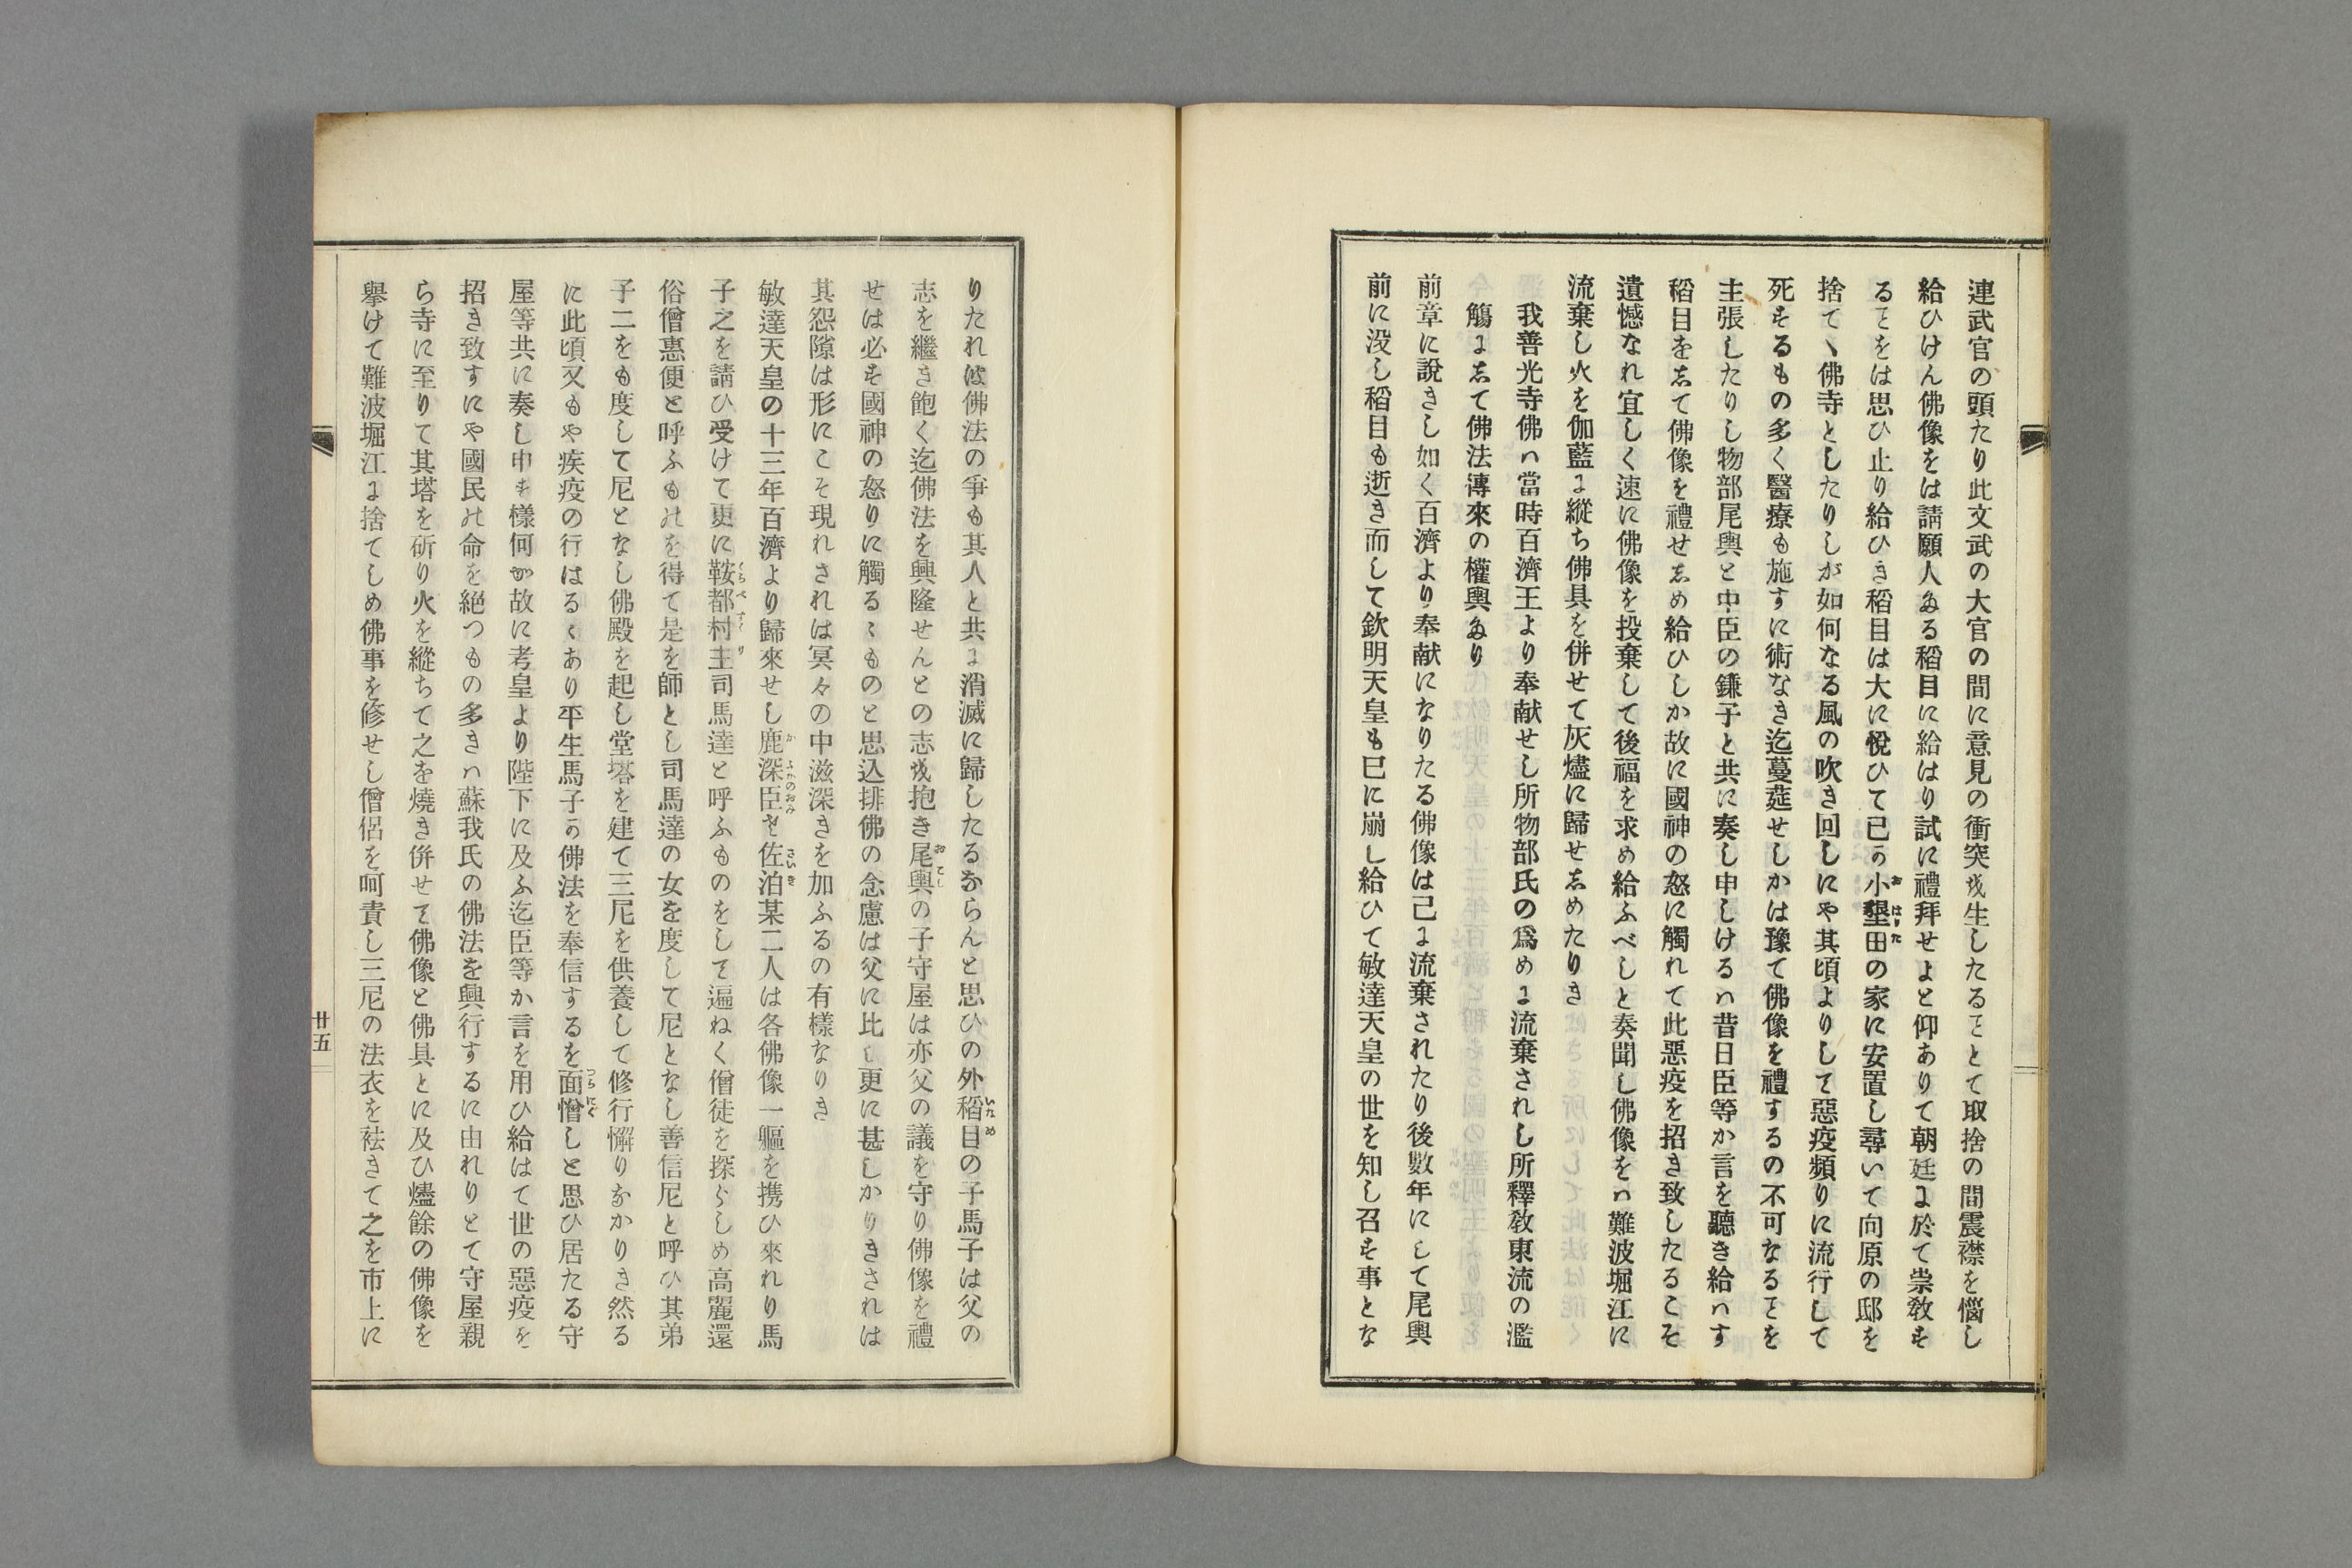 連武官の頭たり此文武の大官の間に意見の衝突を生したるヿとて取捨の間震襟を惱し
給ひけん佛像をは請願人ある稻目に給はり試に禮拜せよと仰ありて朝廷に於て崇敎す
るヿをは思ひ止り給ひき稻目は大に悅ひて已の小墾田の家に安置し尋いて向原の邸を
捨てゝ佛寺としたりしが如何なる風の吹き回しにや其頃よりして惡疫頻りに流行して
死するもの多く醫療も施すに術なき迄蔓莚せしかは豫て佛像を禮するの不可なるヿを
主張したりし物部尾輿と中臣の鎌子と共に奏し申しけるハ昔日臣等か言を聽き給ハす
稻目をして佛像を禮せしめ給ひしか故に國神の怒に觸れて此惡疫を招き致したるこそ
遺憾なれ宜しく速に佛像を投棄して後福を求め給ふべしと奏聞し佛像をハ難波堀江に
流棄し火を伽藍に縱ち佛具を併せて灰燼に歸せしめたりき
我善光寺佛ハ當時百濟王より奉献せし所物部氏の爲めに流棄されし所釋敎東流の濫
觴にして佛法傳來の權輿あり
前章に說きし如く百濟より奉献になりたる佛像は己に流棄されたり後數年にして尾輿
前に没し稻目も逝き而して欽明天皇も已に崩し給ひて敏達天皇の世を知し召す事とな
りたれは佛法の爭も其人と共に消滅に歸したるならんと思ひの外稻目の子馬子は父の
志を繼き飽く迄佛法を興隆せんとの志を抱き尾輿の子守屋は亦父の議を守り佛像を禮
せは必す國神の怒りに觸るゝものと思込排佛の念慮は父に比し更に甚しかりきされは
其怨隙は形にこそ現れされは冥々の中滋深きを加ふるの有樣なりき
敏達天皇の十三年百濟より歸來せし鹿深臣と佐泊某二人は各佛像一軀を携ひ來れり馬
子之を請ひ受けて更に鞍都村主司馬達と呼ふものをして遍ねく僧徒を探らしめ高麗還
俗僧惠便と呼ふものを得て是を師とし司馬達の女を度して尼となし善信尼と呼ひ其弟
子二をも度して尼となし佛殿を起し堂塔を建て三尼を供養して修行懈りなかりき然る
に此頃又もや疾疫の行はるゝあり平生馬子の佛法を奉信するを面憎しと思ひ居たる守
屋等共に奏し申す樣何か故に考皇より陛下に及ふ迄臣等か言を用ひ給はて世の惡疫を
招き致すにや國民の命を絕つもの多きハ蘇我氏の佛法を興行するに由れりとて守屋親
ら寺に至りて其塔を斫り火を縱ちて之を燒き併せて佛像と佛具とに及ひ燼餘の佛像を
擧けて難波堀江に捨てしめ佛事を修せし僧侶を呵責し三尼の法衣を袪きて之を市上に
廿五